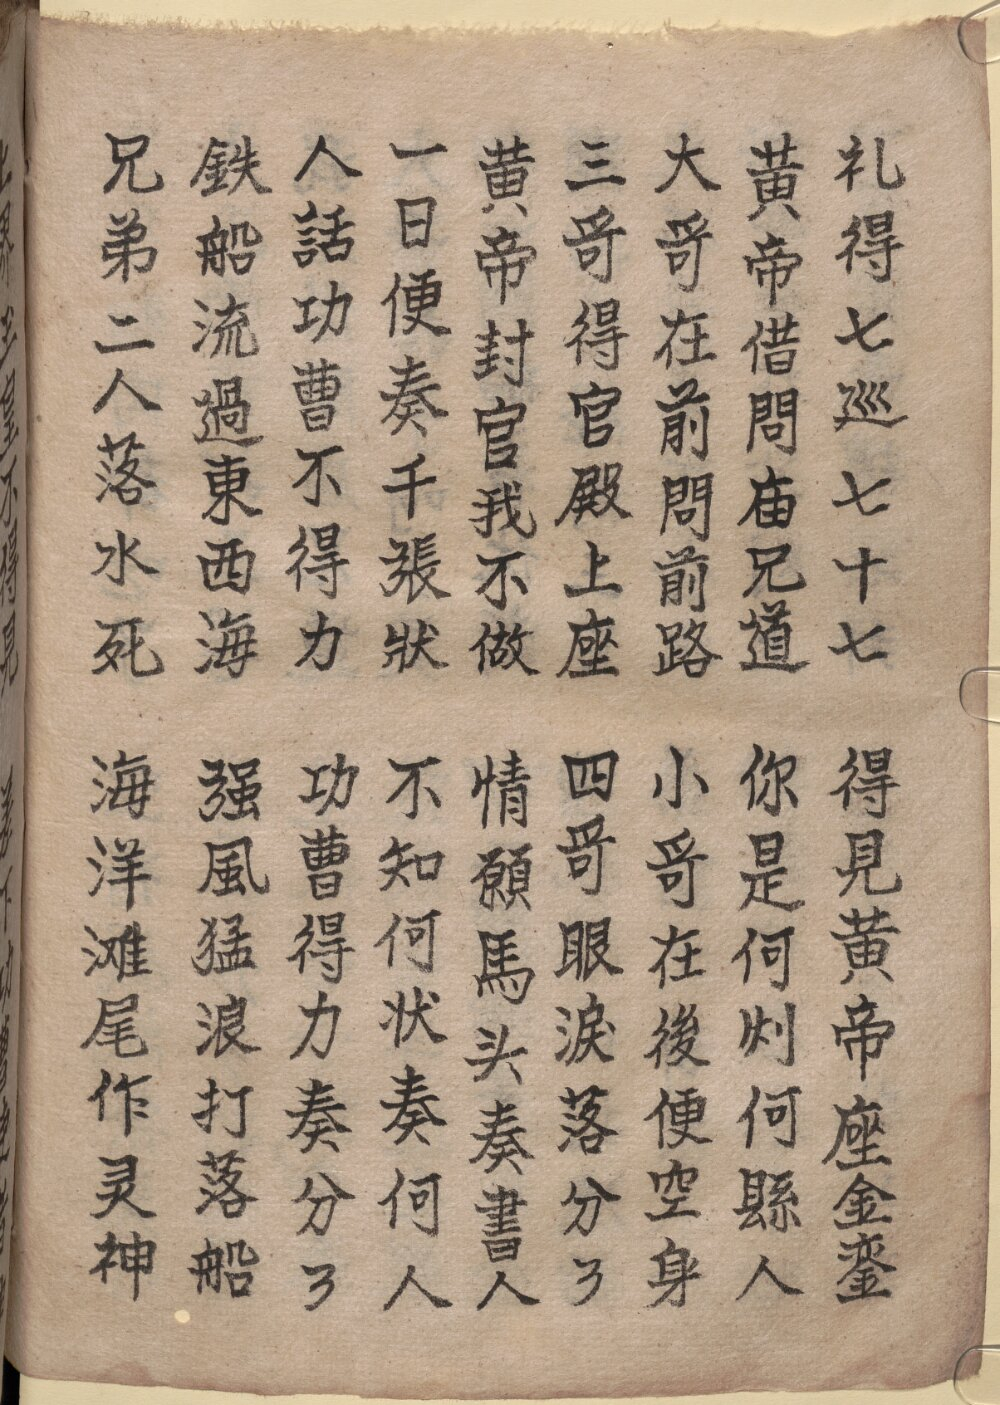 礼得七巡七十七　得見黄帝座金銮
黄帝借問庙兄道　你是何州何縣人
大哥在前問前路　小哥在後便空身
三哥得官殿上座　四哥眼淚落分了
黄帝封官我不做　情願馬头奏書人
一日便奏千張狀　不知何状奏何人
人話功曹不得力　功曹得力奏分了
鉄船流過東西海　强風猛浪打落船
兄弟二人落水死　海洋滩尾作灵神